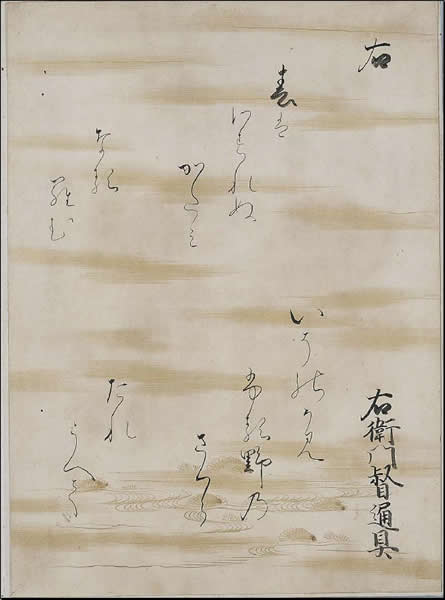 右
右衛門督通具
いそのかみ
ふる野乃
さくら
たれ
うへて
春は
わすれぬ
かたみ
なる
らむ